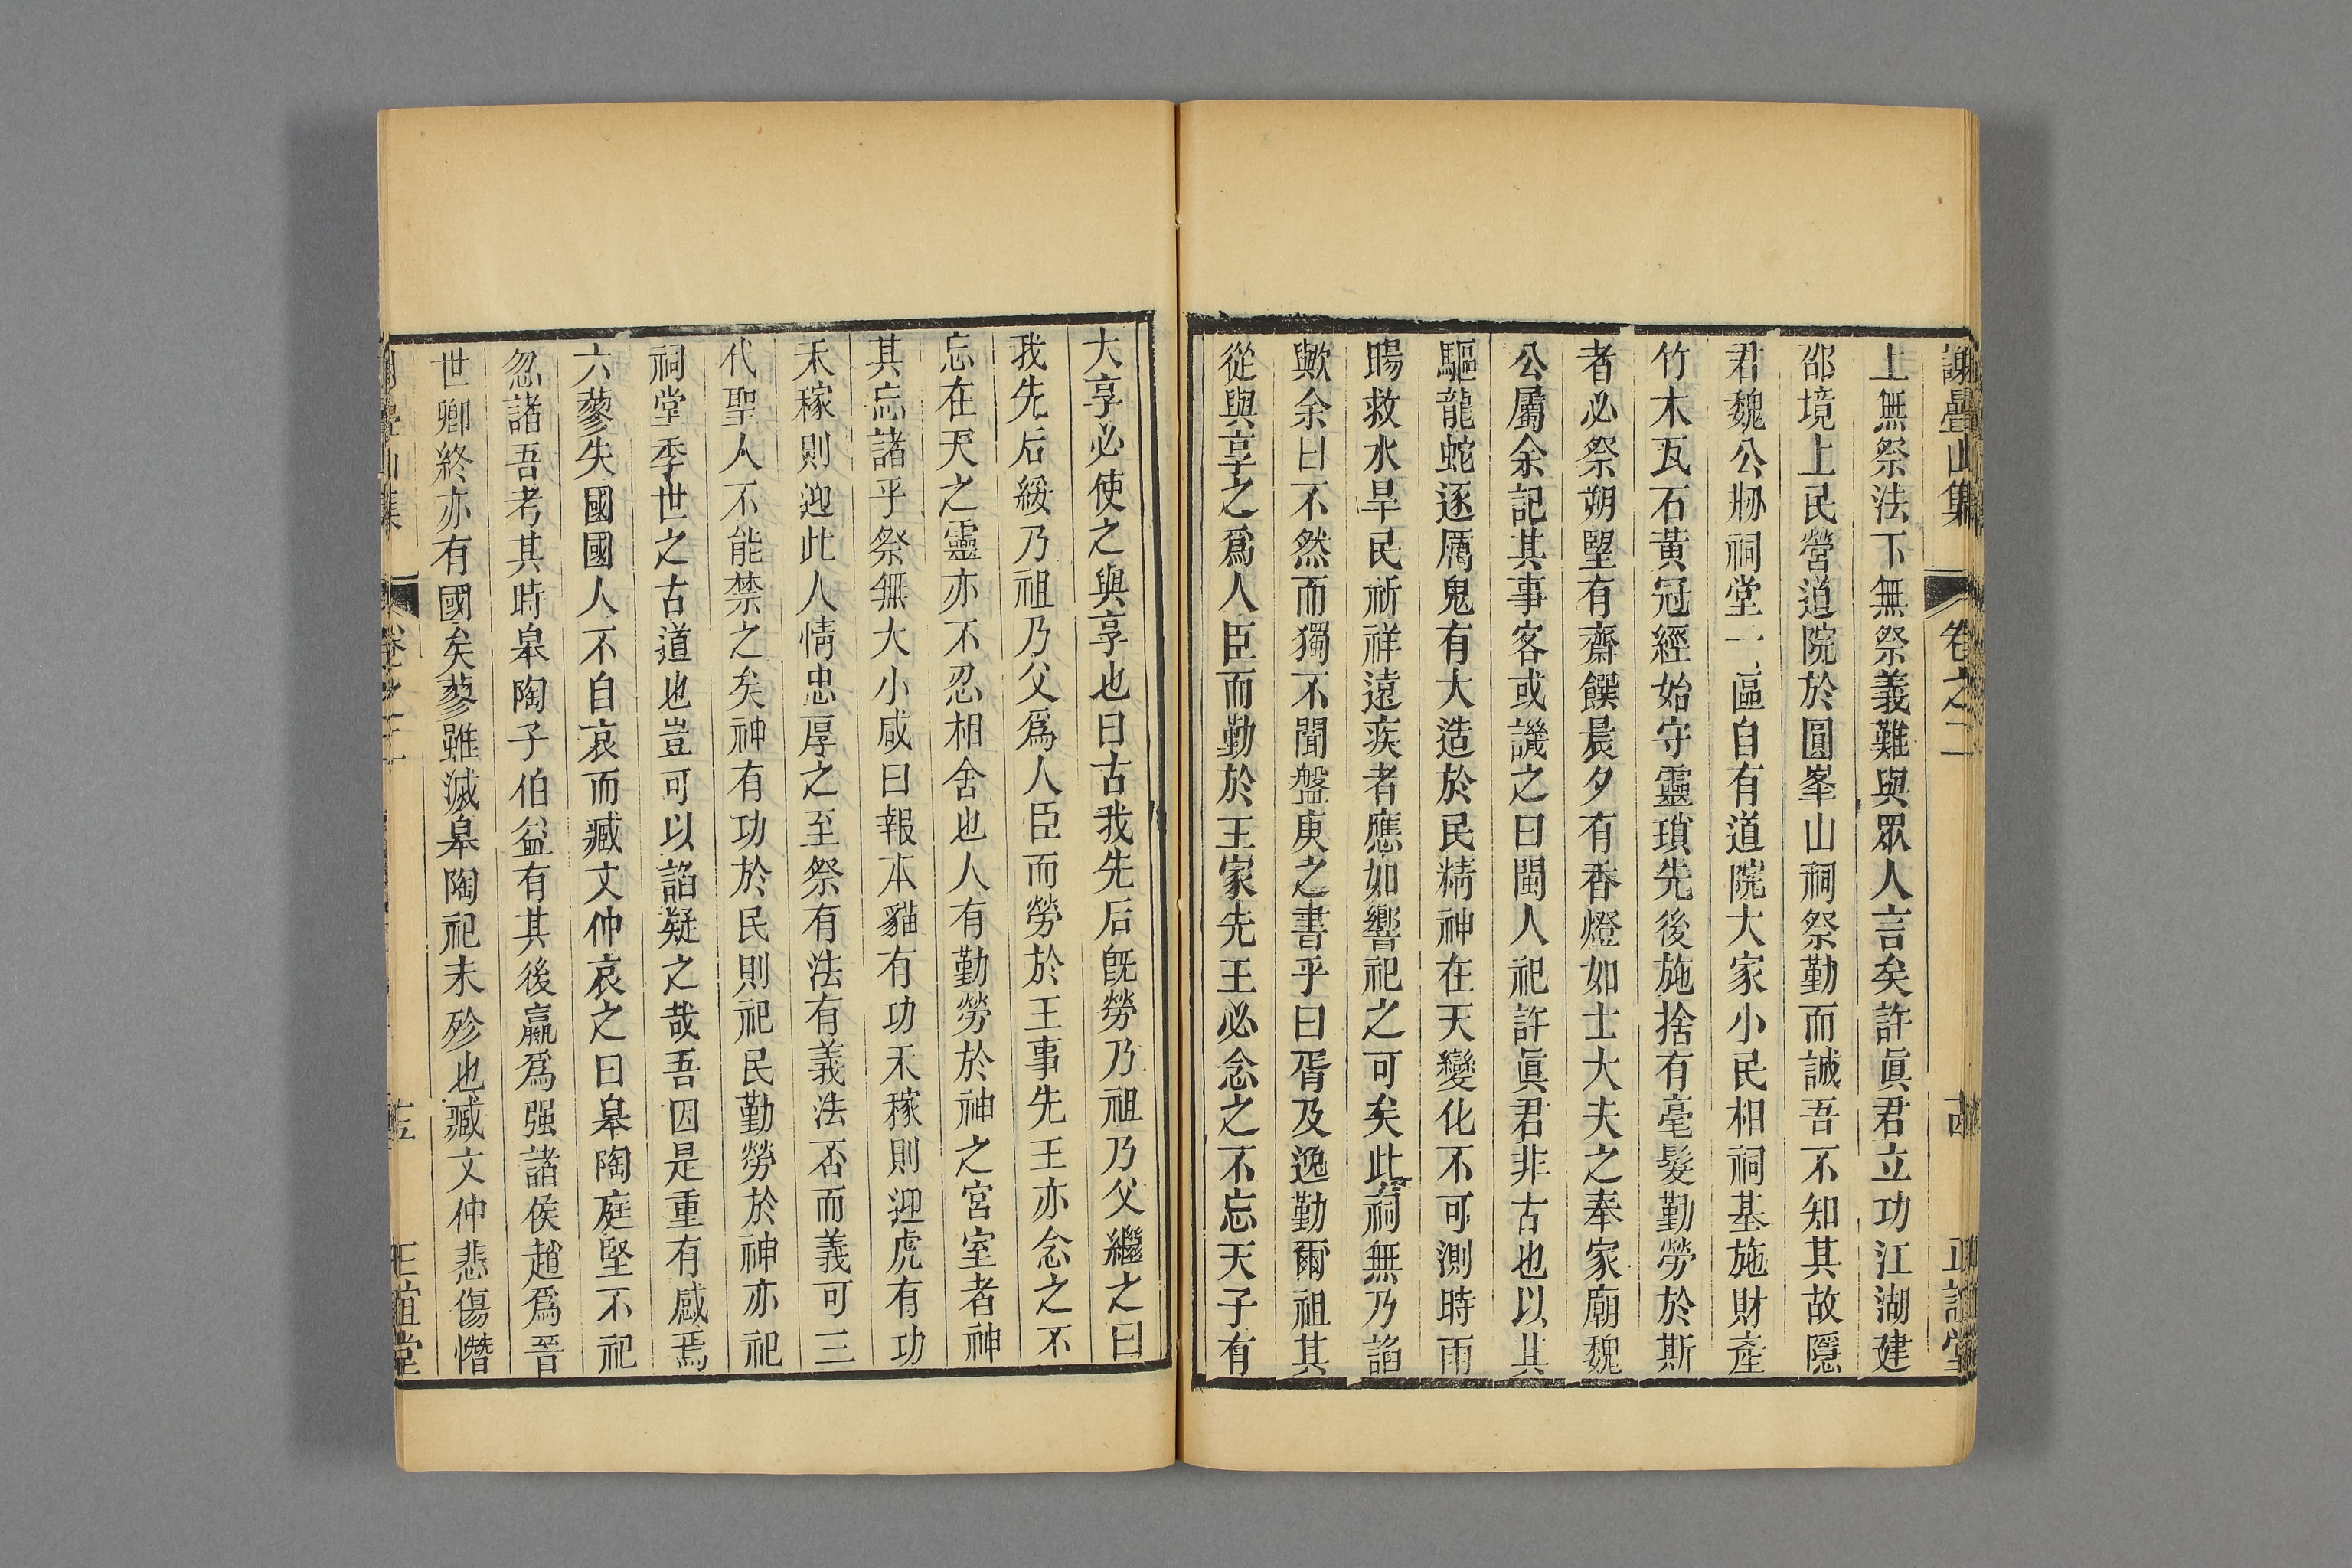 謝疊山集 卷之二 正誼堂
上無祭法下無祭義難與眾人言矣許眞君立功江湖建
邵境上民營道院於圓峯山祠祭勤而誠吾不知其故隱
君魏公刱祠堂一區自有道院大家小民相祠基施財產
竹木瓦石黃冠經始守靈瑣先後施捨有毫髮勤勞於斯
者必祭朔朢有齋饌晨夕有香燈如士大夫之奉家廟魏
公屬余記其事客或譏之曰閩人祀許眞君非古也以其
驅龍蛇逐厲鬼有大造於民精神在天變化不可測時雨
暘救水旱民祈祥遠疾者應如響祀之可矣此祠無乃諂
歟余曰不然而獨不聞盤庚之書乎曰胥及逸勤爾祖其
從與享之爲人臣而勤於王家先王必念之不忘天子有
大享必使之與享也曰古我先后旣勞乃祖乃父繼之曰
我先后綏乃祖乃父爲人臣而勞於王事先王亦念之不
忘在天之靈亦不忍相舍也人有勤勞於神之宮室者神
其忘諸乎祭無大小咸曰報本貓有功禾稼則迎虎有功
禾稼則迎此人情忠厚之至祭有法有義法否而義可三
代聖人不能禁之矣神有功於民則祀民勤勞於神亦祀
祠堂季世之古道也豈可以諂疑之哉吾因是重有感焉
六蓼失國國人不自哀而臧文仲哀之曰皋陶庭堅不祀
忽諸吾考其時皋陶子伯益有其後嬴爲强諸侯趙爲晉
世卿終亦有國矣蓼雖滅皋陶祀未殄也臧文仲悲傷憯